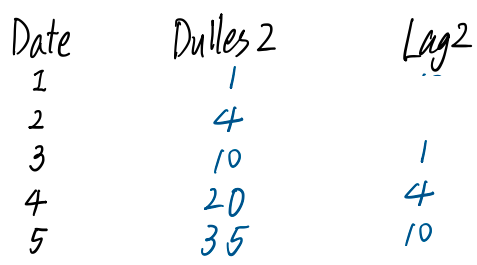 Date Dulles2 Lag2
1 1
2 4
3 10 1
4 20 4
5 35 10